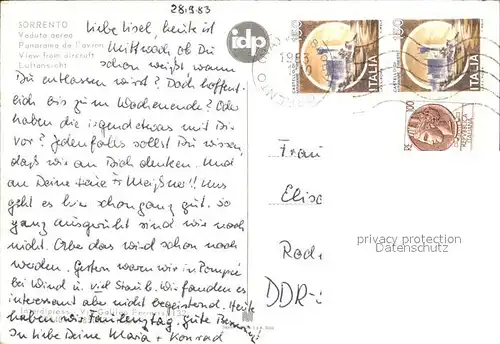 28.9.83
SORRENTO
Veduta aerea
Panorama de l'avion
View from aircraft
Luftansicht
idp
ITALIA
ITALIA
Liebe Lisel, heute ist
Mittwoch, ob Du
schon weißt wann
Du entlassen wirst? Doch hoffent-
lich bis zum Wochenende? Oder
haben die irgend etwas mit Dir
vor? Jedenfalls sollst Du wissen,
daß wir an Dich denken. Und
an Deine Frau Meißner!! Uns
geht es hier schon ganz gut. So
ganz ausgeruht sind wir noch
nicht. Aber das wird schon noch
werden. Gestern waren wir in Pompei
bei Wind u. viel Staub. Wir fanden es
interessant aber nicht begeisternd. Heute
haben wir Faulenztag. Gute Besserung!
In Liebe Deine Maria + Konrad
Frau
Elis
Rad
DDR-
privacy protection
Datenschutz